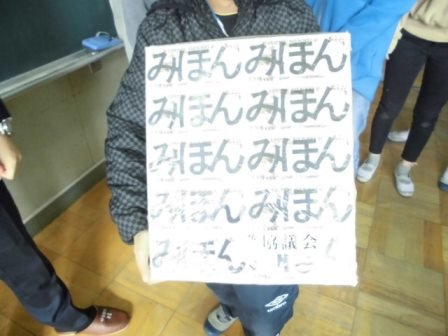 みほん みほん
みほん みほん
みほん みほん
みほん みほん
みほん 協議会
umbro